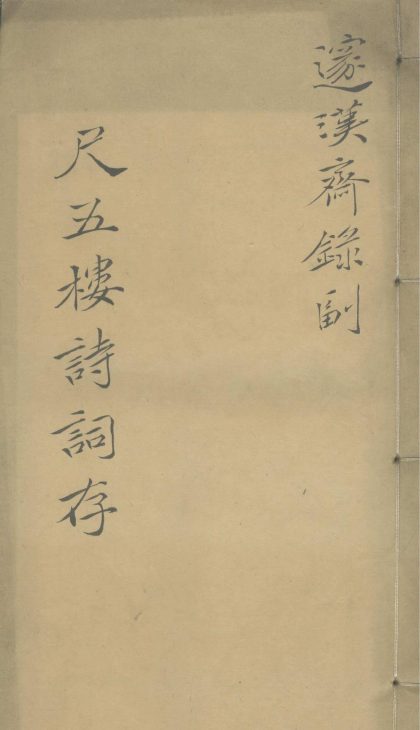 邃漢齋錄副
尺五樓詩詞存